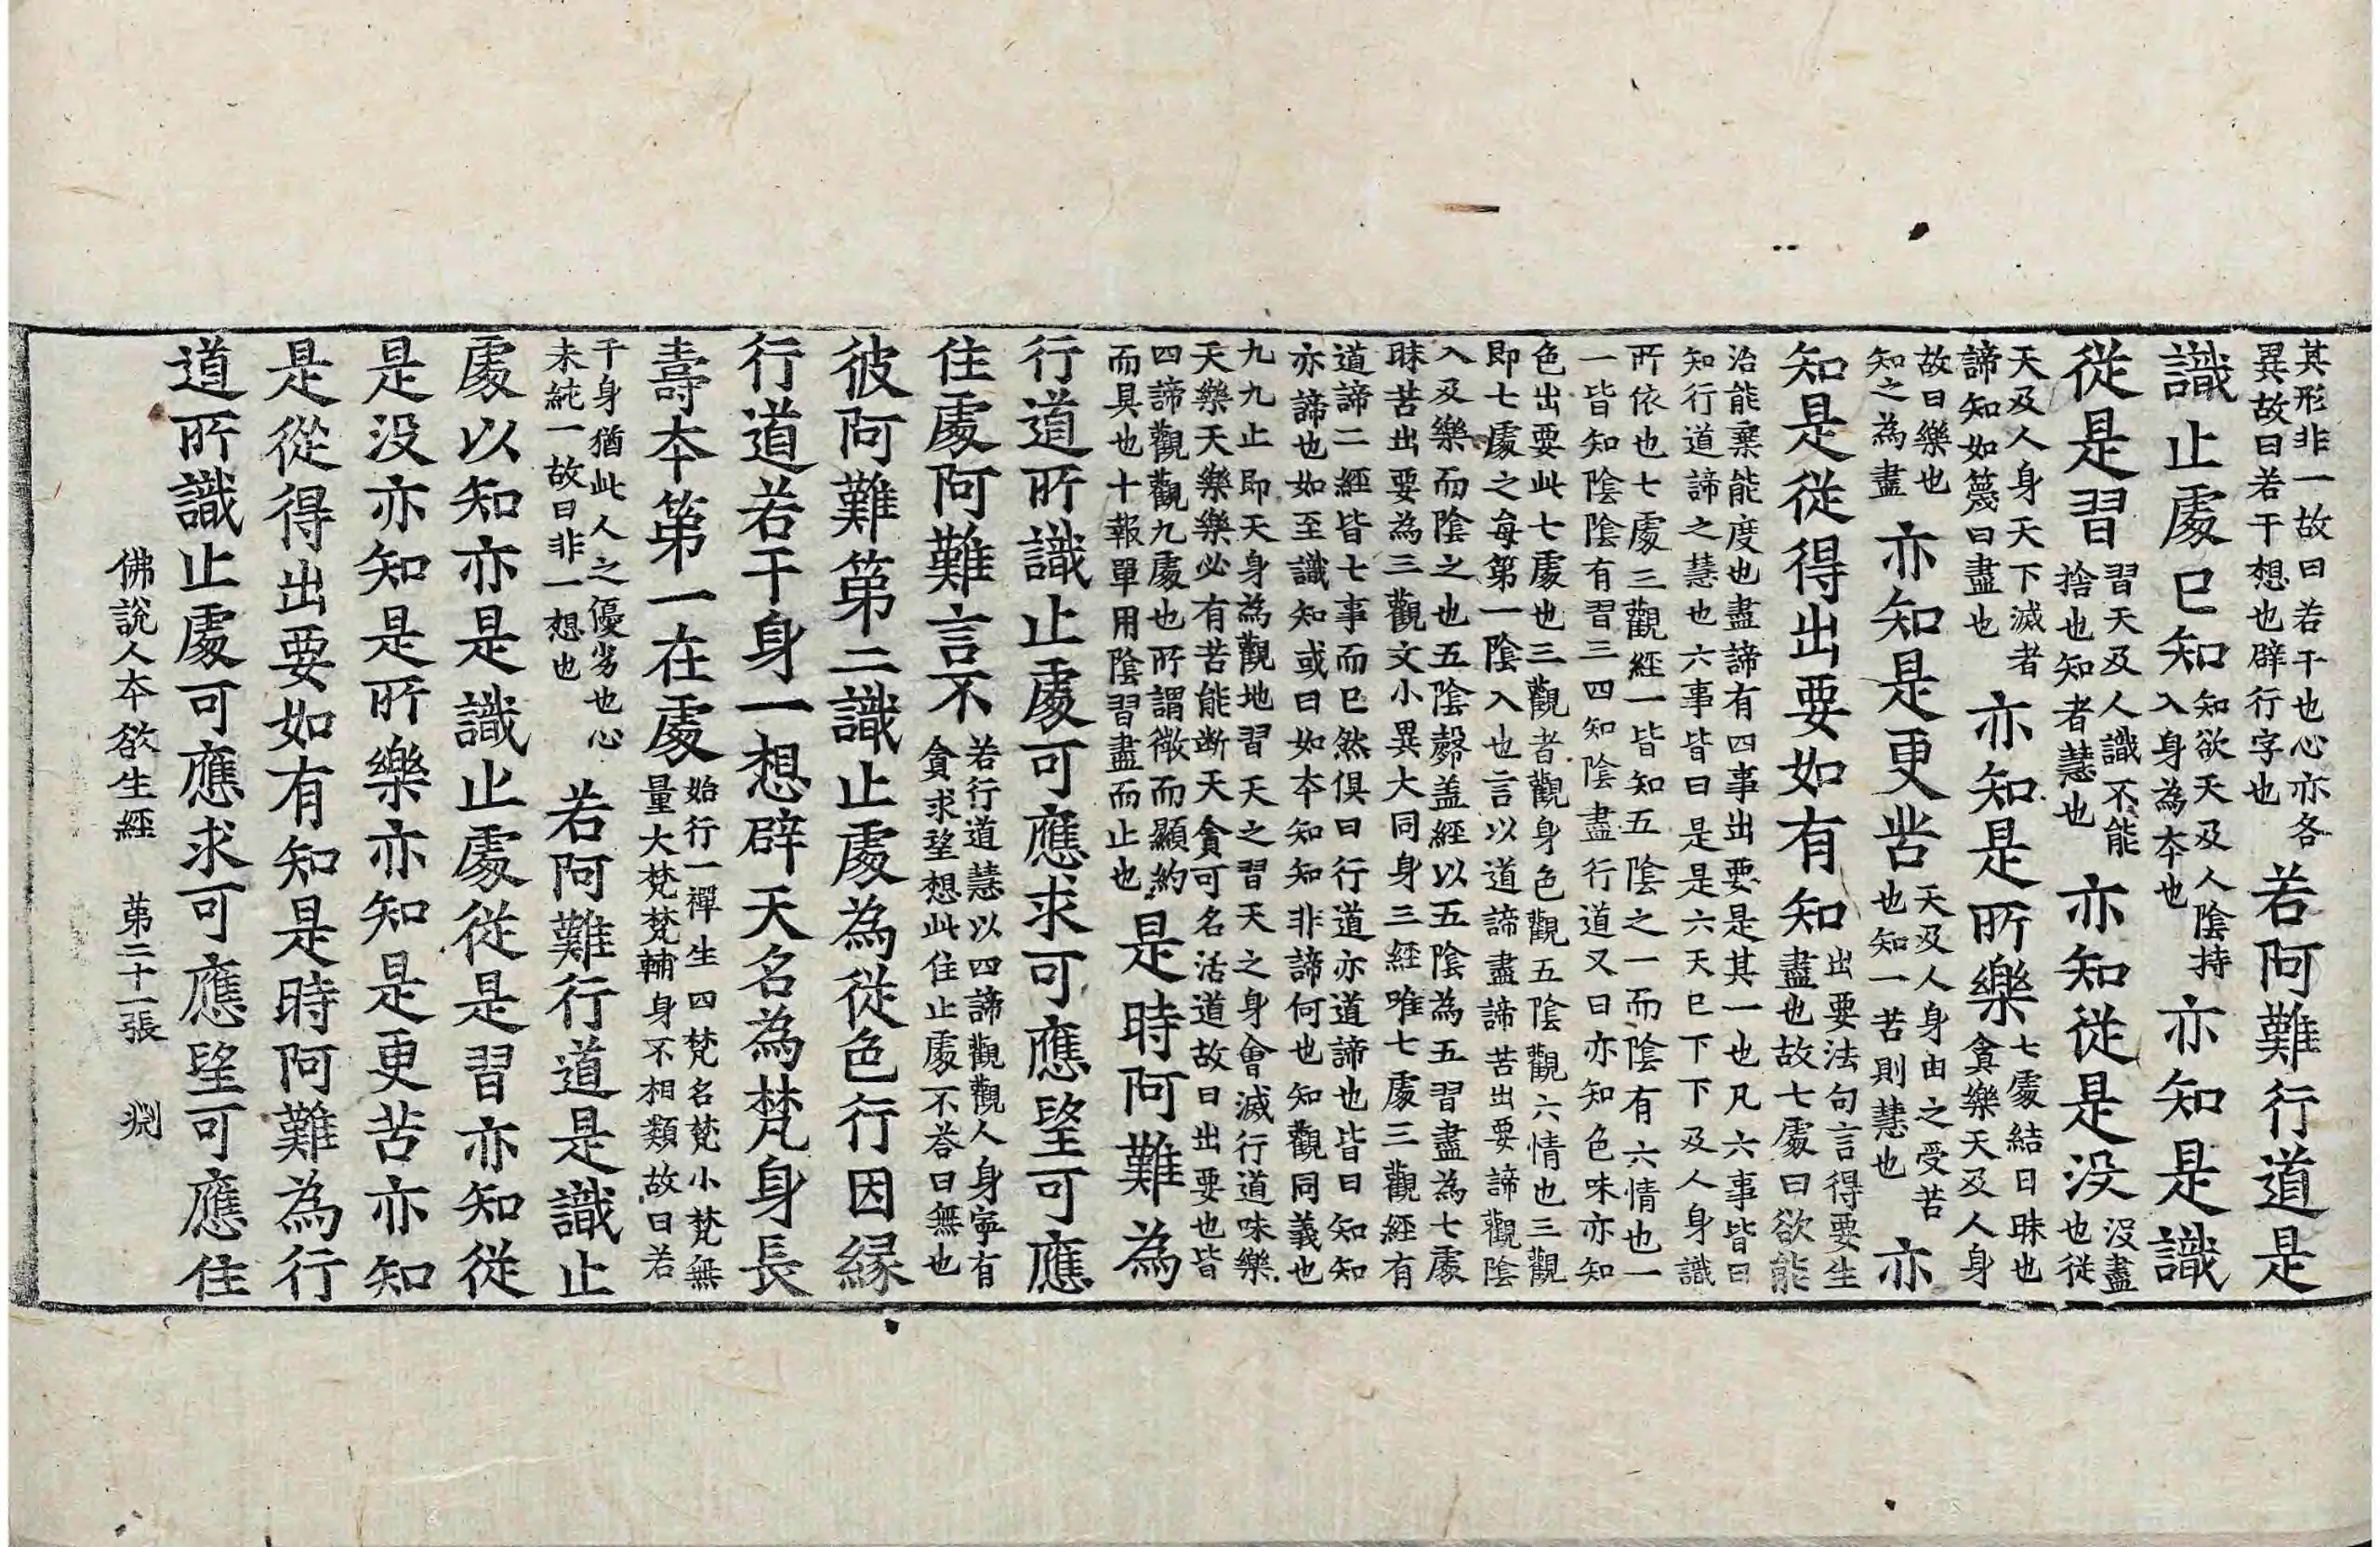 其形非一故曰若干也心亦各
異故曰若干想也辟行字也
若阿難行道是
識止處已知
知欲天及人陰持
入身為本也
亦知是識
從是習
習天及人識不能
捨也知者慧也
亦知從是没
没盡
也從
天及人身天下滅者
諦知如篾曰盡也
亦知是所樂
七處結曰昧也
貪樂天及人身
故曰樂也
知之為盡
亦知是更苦
天及人身由之受苦
也知一苦則慧也
亦
知是從得出要如有知
出要法句言得要生
盡也故七處曰欲能
治能棄能度也盡諦有四事出要是其一也凡六事皆曰
知行道諦之慧也六事皆曰是是六天已下下及人身識
所依也七處三觀經一皆知五陰之一而陰有六情也一
一皆知陰陰有習三四知陰盡行道又曰亦知色味亦知
色出要此七處也三觀者觀身色觀五陰觀六情也三觀
即七處之每第一陰入也言以道諦盡諦苦出要諦觀陰
入及樂而陰之也五陰㢣盖經以五陰為五習盡為七處
昧苦出要為三觀文小異大同身三經唯七處三觀經有
道諦二經皆七事而已然俱曰行道亦道諦也皆曰知知
亦諦也如至識知或曰如本知知非諦何也知觀同義也
九九止即天身為觀地習天之習天之身會滅行道味樂
天樂天樂樂必有苦能断天貪可名活道故曰出要也皆
四諦觀觀九處也所謂徴而顯約
而具也十報單用陰習盡而止也
是時阿難為
行道所識止處可應求可應望可應
住處阿難言不
若行道慧以四諦觀觀人身寧有
貪求望想此住止處不荅曰無也
彼阿難第二識止處為從色行因縁
行道若干身一想辟天名為梵身長
壽本第一在處
始行一禪生四梵名梵小梵無
量大梵梵輔身不相類故曰若
干身猶此人之優劣也心
未純一故曰非一想也
若阿難行道是識止
處以知亦是識止處從是習亦知從
是没亦知是所樂亦知是更苦亦知
是從得出要如有知是時阿難為行
道所識止處可應求可應望可應住
佛說人本欲生經　第二十一張　渕